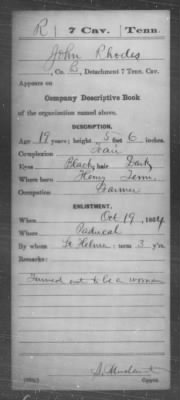 R | 7 Cav. | Tenn.
John Rhodes
, Co. B, Detachment 7 Tenn. Cav.
Appears on
Company Descriptive Book
of the organization named above.
DESCRIPTION.
Age 19 years; height 5 feet 6 inches.
Complexion Fair
Eyes Black; hair Dark
Where born Henry Tenn.
Occupation Farmer
ENLISTMENT.
When Oct 19, 1864.
Where Paducah
By whom Helmer; term 3 y'rs.
Remarks:
Turned out to be a woman
Copyist.